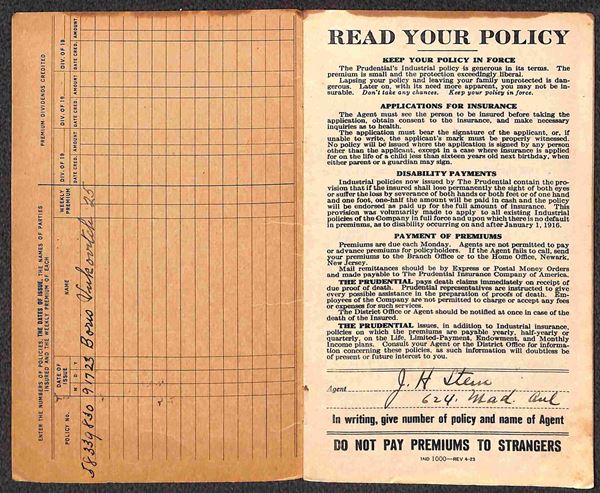 ENTER THE NUMBERS OF POLICIES, THE DATES OF ISSUE, THE NAMES OF PARTIES
INSURED AND THE WEEKLY PREMIUM OF EACH
PREMIUM DIVIDENDS CREDITED
POLICY NO.
DATE OF
ISSUE
M D Y
NAME
WEEKLY
PREMIUM
DIV. OF 19
DATE CRED. AMOUNT
DIV. OF 19
DATE CRED. AMOUNT
DIV. OF 19
DATE CRED. AMOUNT
58339830 9 17 23 Boris Vukovitch 25
READ YOUR POLICY
KEEP YOUR POLICY IN FORCE
The Prudential's Industrial policy is generous in its terms. The
premium is small and the protection exceedingly liberal.
Lapsing your policy and leaving your family unprotected is dan-
gerous. Later on, with its need more apparent, you may not be in-
surable. Don't take any chances. Keep your policy in force.
APPLICATIONS FOR INSURANCE
The Agent must see the person to be insured before taking the
application, obtain consent to the insurance, and make necessary
inquiries as to health.
The application must bear the signature of the applicant, or, if
unable to write, the applicant's mark must be properly witnessed.
No policy will be issued where the application is signed by any person
other than the applicant, except in a case where insurance is applied
for on the life of a child less than sixteen years old next birthday, when
either parent or a guardian may sign.
DISABILITY PAYMENTS
Industrial policies now issued by The Prudential contain the pro-
vision that if the insured shall lose permanently the sight of both eyes
or suffer the loss by severance of both hands or both feet or of one hand
and one foot, one-half the amount will be paid in cash and the policy
will be endorsed as paid up for the full amount of insurance. This
provision was voluntarily made to apply to all existing Industrial
policies of the Company in full force and upon which there is no default
in premiums, as to disability occurring on and after January 1, 1916.
PAYMENT OF PREMIUMS
Premiums are due each Monday. Agents are not permitted to pay
or advance premiums for policyholders. If the Agent fails to call, send
your premiums to the Branch Office or to the Home Office, Newark,
New Jersey.
Mail remittances should be by Express or Postal Money Orders
and made payable to The Prudential Insurance Company of America.
THE PRUDENTIAL pays death claims immediately on receipt of
due proof of death. Prudential representatives are instructed to give
every possible assistance in the preparation of proofs of death. Em-
ployees of the Company are not permitted to charge or accept any fees
or expenses for such services.
The District Office or Agent should be notified at once in case of the
death of the Insured.
THE PRUDENTIAL issues, in addition to Industrial insurance,
policies on which the premiums are payable yearly, half-yearly or
quarterly, on the Life, Limited-Payment, Endowment, and Monthly
Income plans. Consult your Agent or the District Office for informa-
tion concerning these policies, as such information will doubtless be
of present or future interest to you.
Agent J. H Stern
624. Mad. Avl
In writing, give number of policy and name of Agent
DO NOT PAY PREMIUMS TO STRANGERS
IND 1000—REV 4-23